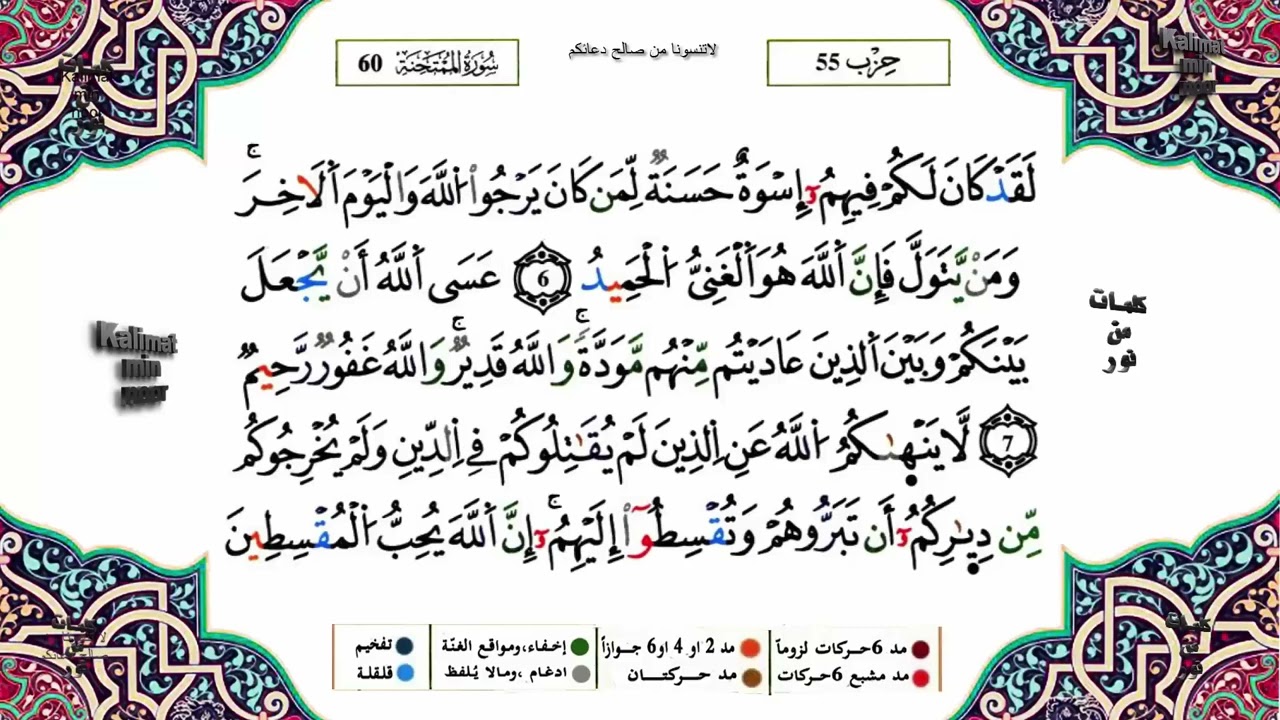 حِزْب 55
لاتنسونا من صالح دعائكم
سُورَةُ المُمْتَحِنَة 60
لَقَدْ كَانَ لَكُمْ فِيهِمُۥٓ إِسْوَةٌ حَسَنَةٞ لِّمَن كَانَ يَرْجُواْ اُللَّهَ وَالْيَوْمَ اَلَاخِرَۚ
وَمَنْ يَّتَوَلَّ فَإِنَّ اَللَّهَ هُوَ اَلْغَنِىُّ اُلْحَمِيدُ 6 عَسَى اَللَّهُ أَنْ يَّجْعَلَ
بَيْنَكُمْ وَبَيْنَ اَلذِينَ عَادَيْتُم مِّنْهُم مَّوَدَّةٗۚ وَاللَّهُ قَدِيرٞۚ وَاللَّهُ غَفُورٞ رَّحِيمٞ
7 لَّا يَنْهٜىٰكُمُ اُللَّهُ عَنِ اِلذِينَ لَمْ يُقَٰتِلُوكُمْ فِے اِلدِّينِ وَلَمْ يُخْرِجُوكُم
مِّن دِيٜ۪ارِكُمُۥٓ أَن تَبَرُّوهُمْ وَتُقْسِطُوٓاْ إِلَيْهِمُۥٓۚ إِنَّ اَللَّهَ يُحِبُّ اُلْمُقْسِطِينَ
Kalimat
min
noor
كلمات
من
نور
Kalimat
min
noor
مد 6 حركات لزوماً
مد 2 او 4 او 6 جوازاً
إخفاء، ومواقع الغنّة
تفخيم
مد مشبع 6 حركات
مد حركتان
ادغام، ومالا يُلفظ
قلقلة
كلمات
من
نور